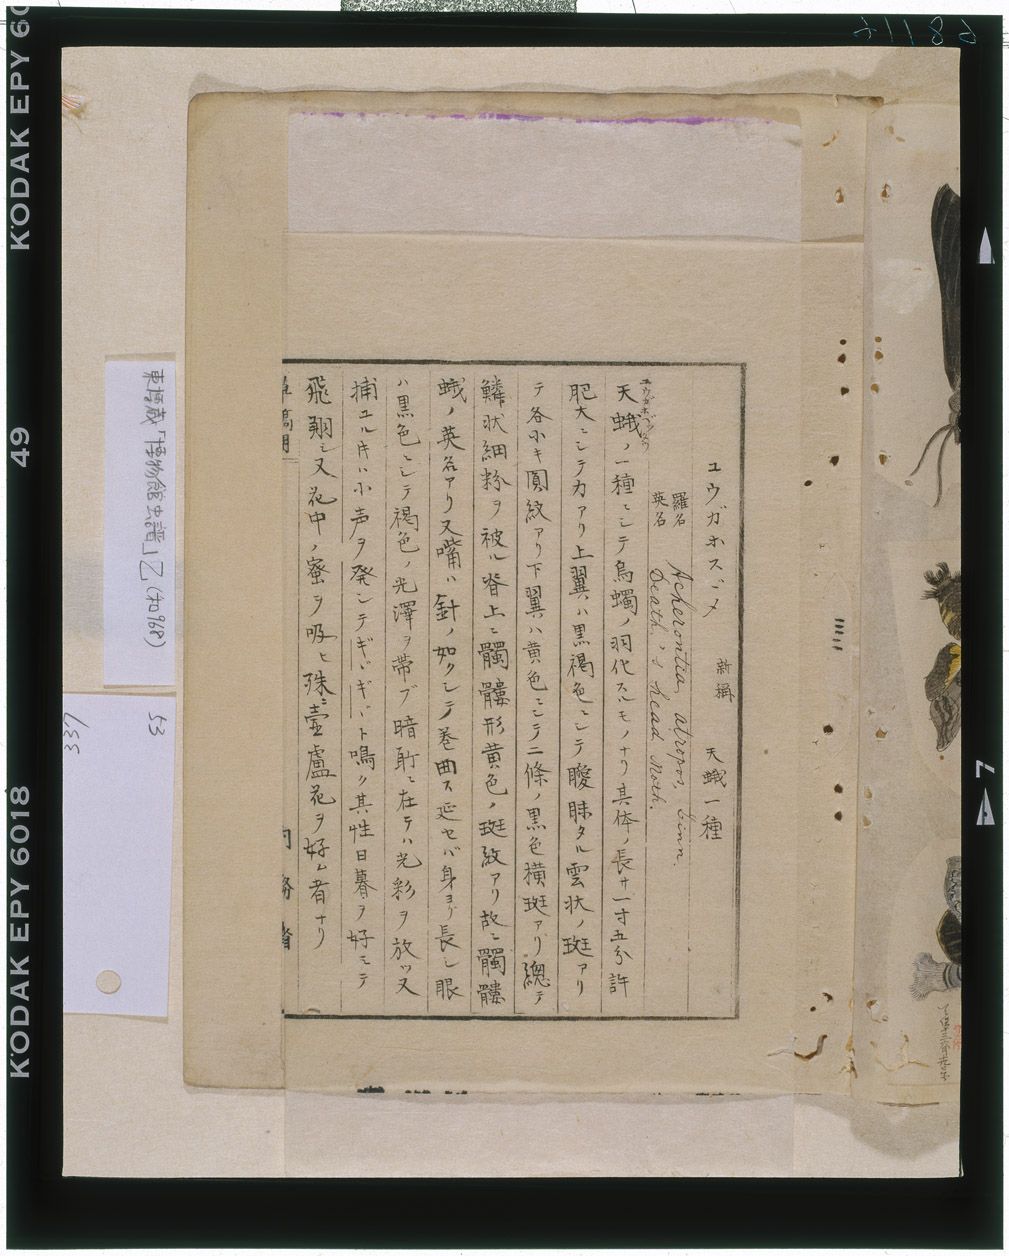 ユウガホスヾメ 新稱 天蛾一種
羅名 Acherontia, atropos, Linn.
英名 Death,'s head Moth.
天蛾ノ一種ニシテ烏蠋ノ羽化スルモノナリ其体ノ長サ一寸五分許
肥大ニシテ力アリ上翼ハ黒褐色ニシテ曖昧タル雲状ノ斑アリ
テ各小キ圓紋アリ下翼ハ黄色ニシテ二條ノ黒色横斑アリ總テ
鱗状細粉ヲ被ル脊上ニ髑髏形黄色ノ斑紋アリ故ニ髑髏
蛾ノ英名アリ又嘴ハ針ノ如クシテ巻曲ス延セバ身ヨリ長シ眼
ハ黒色ニシテ褐色ノ光澤ヲ帯ブ暗所ニ在テハ光彩ヲ放ツ又
捕ユル片ハ小声ヲ発シテギバギバト鳴ク其性日暮ヲ好ミテ
飛翔シ又花中ノ蜜ヲ吸ヒ殊ニ壷盧花ヲ好ム者ナリ
内務省
東博蔵「博物館虫譜」乙(和968)
53
537
KODAK EPY 6018
49
KODAK EPY 60
7